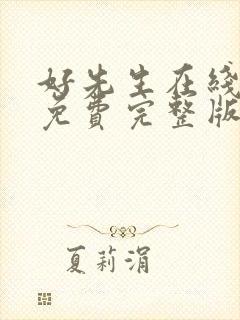 好先生在线
免费完整版
夏莉涓